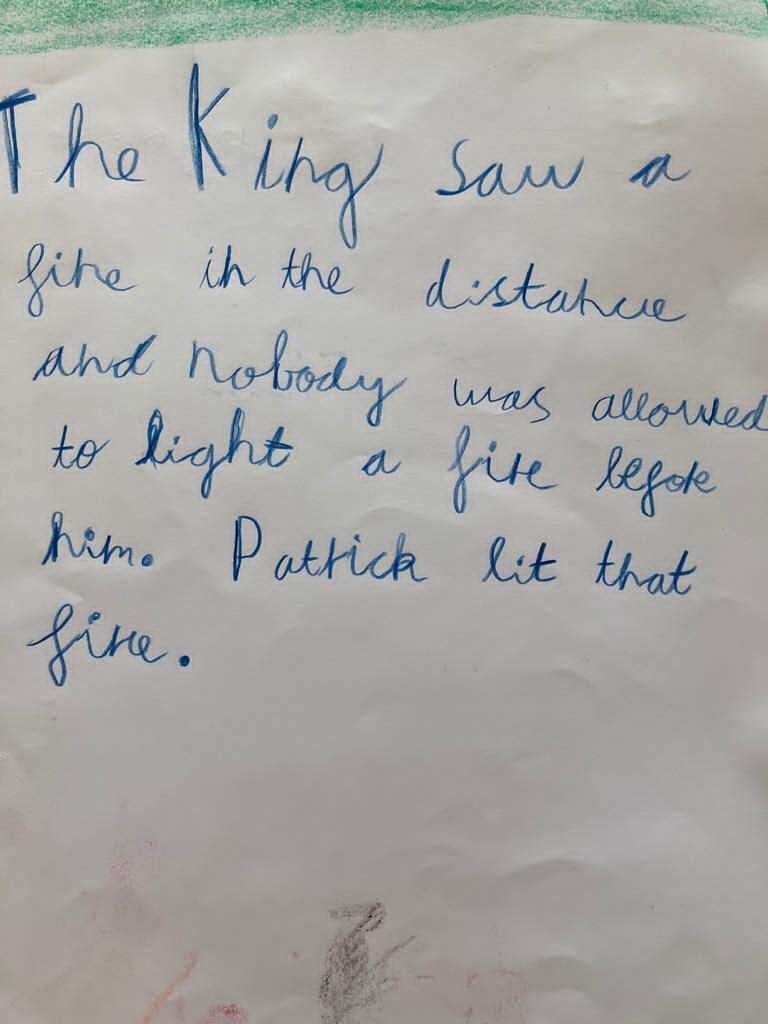 The King saw a
fire in the distance
and nobody was allowed
to light a fire before
him. Patrick lit that
fire.